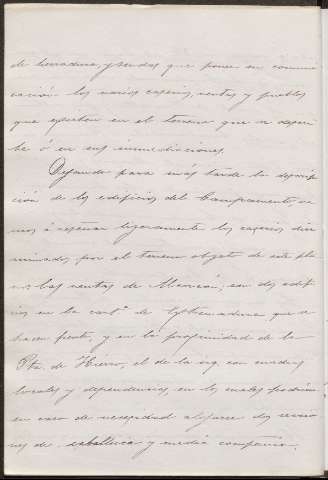 de herradura, y sendas que ponen en comuni-
cación los varios caseríos, ventas y pueblos
que existen en el terreno que se descri-
be ó en sus inmediaciones.
Dejando para más tarde la descrip-
ción de los edificios del Campamento, va-
mos á reseñar ligeramente los caseríos dise-
minados por el terreno objeto de este pla-
no: las ventas de Alarcón, son dos edifi-
cios en la carrª de Extremadura que se
hacen frente, y en la proximidad de la
Pta. de Hierro, el de la izq. con madres
locales y dependencias, en los cuales podrían
en caso de necesidad alojarse dos seccio-
nes de caballería y media compañía.